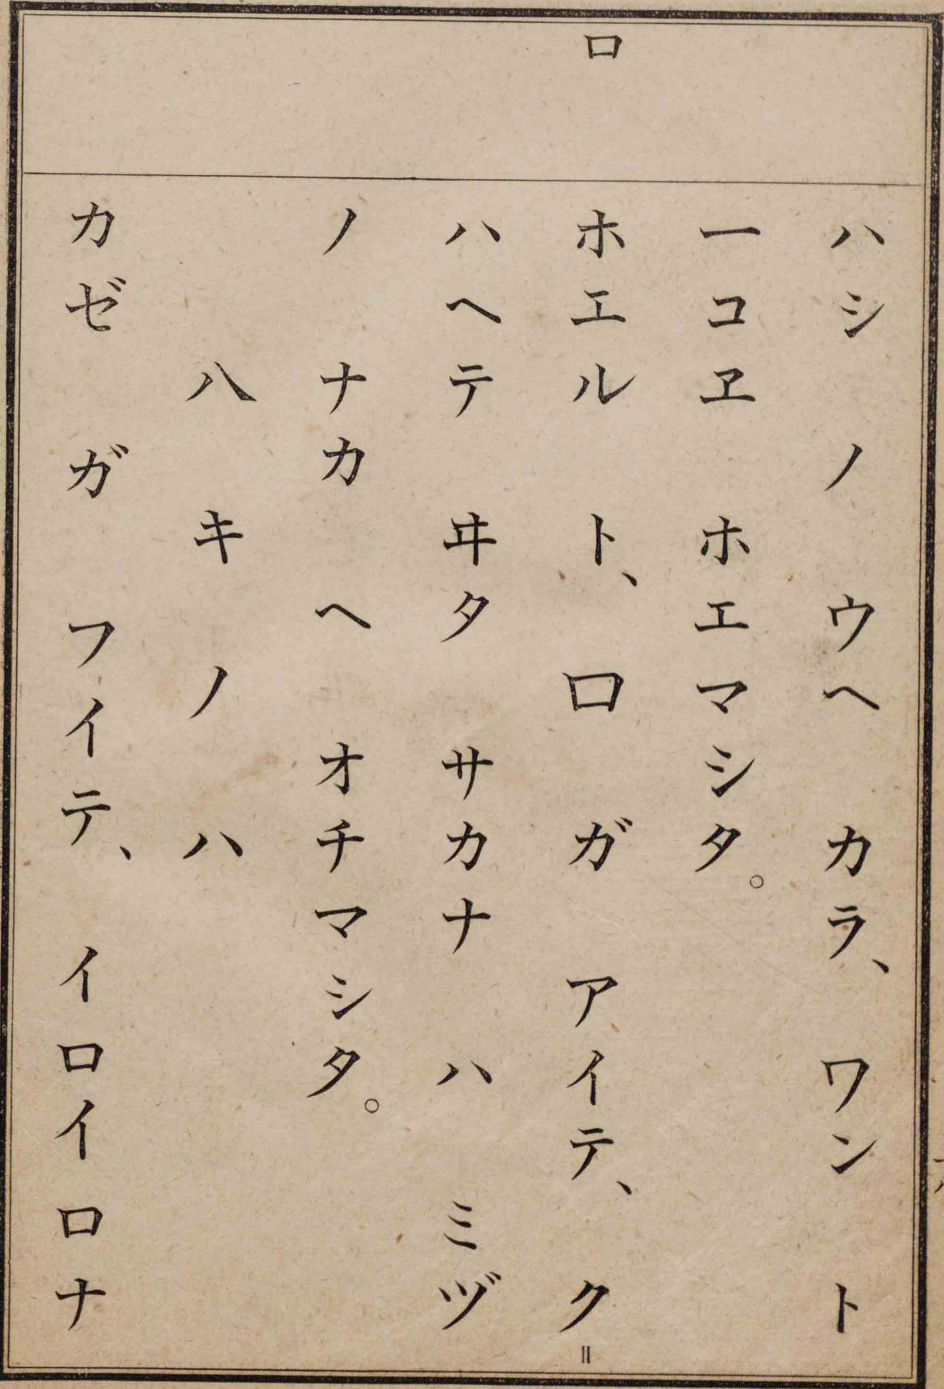 口
ハシ ノ ウヘ カラ、ワン ト
一コヱ ホエマシタ。
ホエル ト、口 ガ アイテ、ク＝
ハヘテ ヰタ サカナ ハ ミヅ
ノ ナカ ヘ オチマシタ。
八 キ ノ ハ
カゼ ガ フイテ、イロイロナ